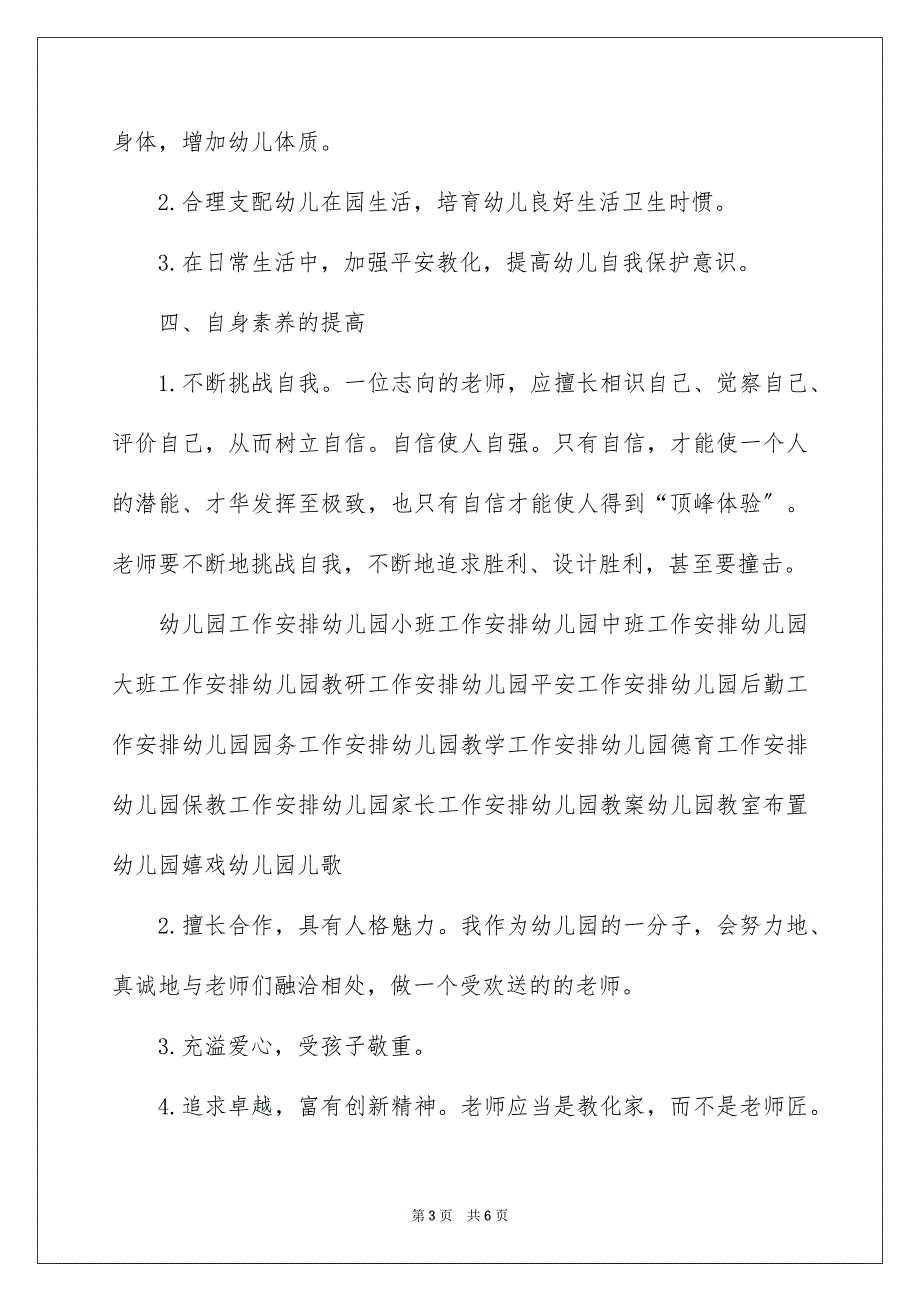 身体，增加幼儿体质。
2.合理支配幼儿在园生活，培育幼儿良好生活卫生时惯。
3.在日常生活中，加强平安教化，提高幼儿自我保护意识。
四、自身素养的提高
1.不断挑战自我。一位志向的老师，应擅长相识自己、觉察自己、
评价自己，从而树立自信。自信使人自强。只有自信，才能使一个人
的潜能、才华发挥至极致，也只有自信才能使人得到“顶峰体验〞。
老师要不断地挑战自我，不断地追求胜利、设计胜利，甚至要撞击。
幼儿园工作安排幼儿园小班工作安排幼儿园中班工作安排幼儿园
大班工作安排幼儿园教研工作安排幼儿园平安工作安排幼儿园后勤工
作安排幼儿园园务工作安排幼儿园教学工作安排幼儿园德育工作安排
幼儿园保教工作安排幼儿园家长工作安排幼儿园教案幼儿园教室布置
幼儿园嬉戏幼儿园儿歌
2.擅长合作，具有人格魅力。我作为幼儿园的一分子，会努力地、
真诚地与老师们融洽相处，做一个受欢送的的老师。
3.充溢爱心，受孩子敬重。
4.追求卓越，富有创新精神。老师应当是教化家，而不是老师匠。
第 3 页 共 6 页